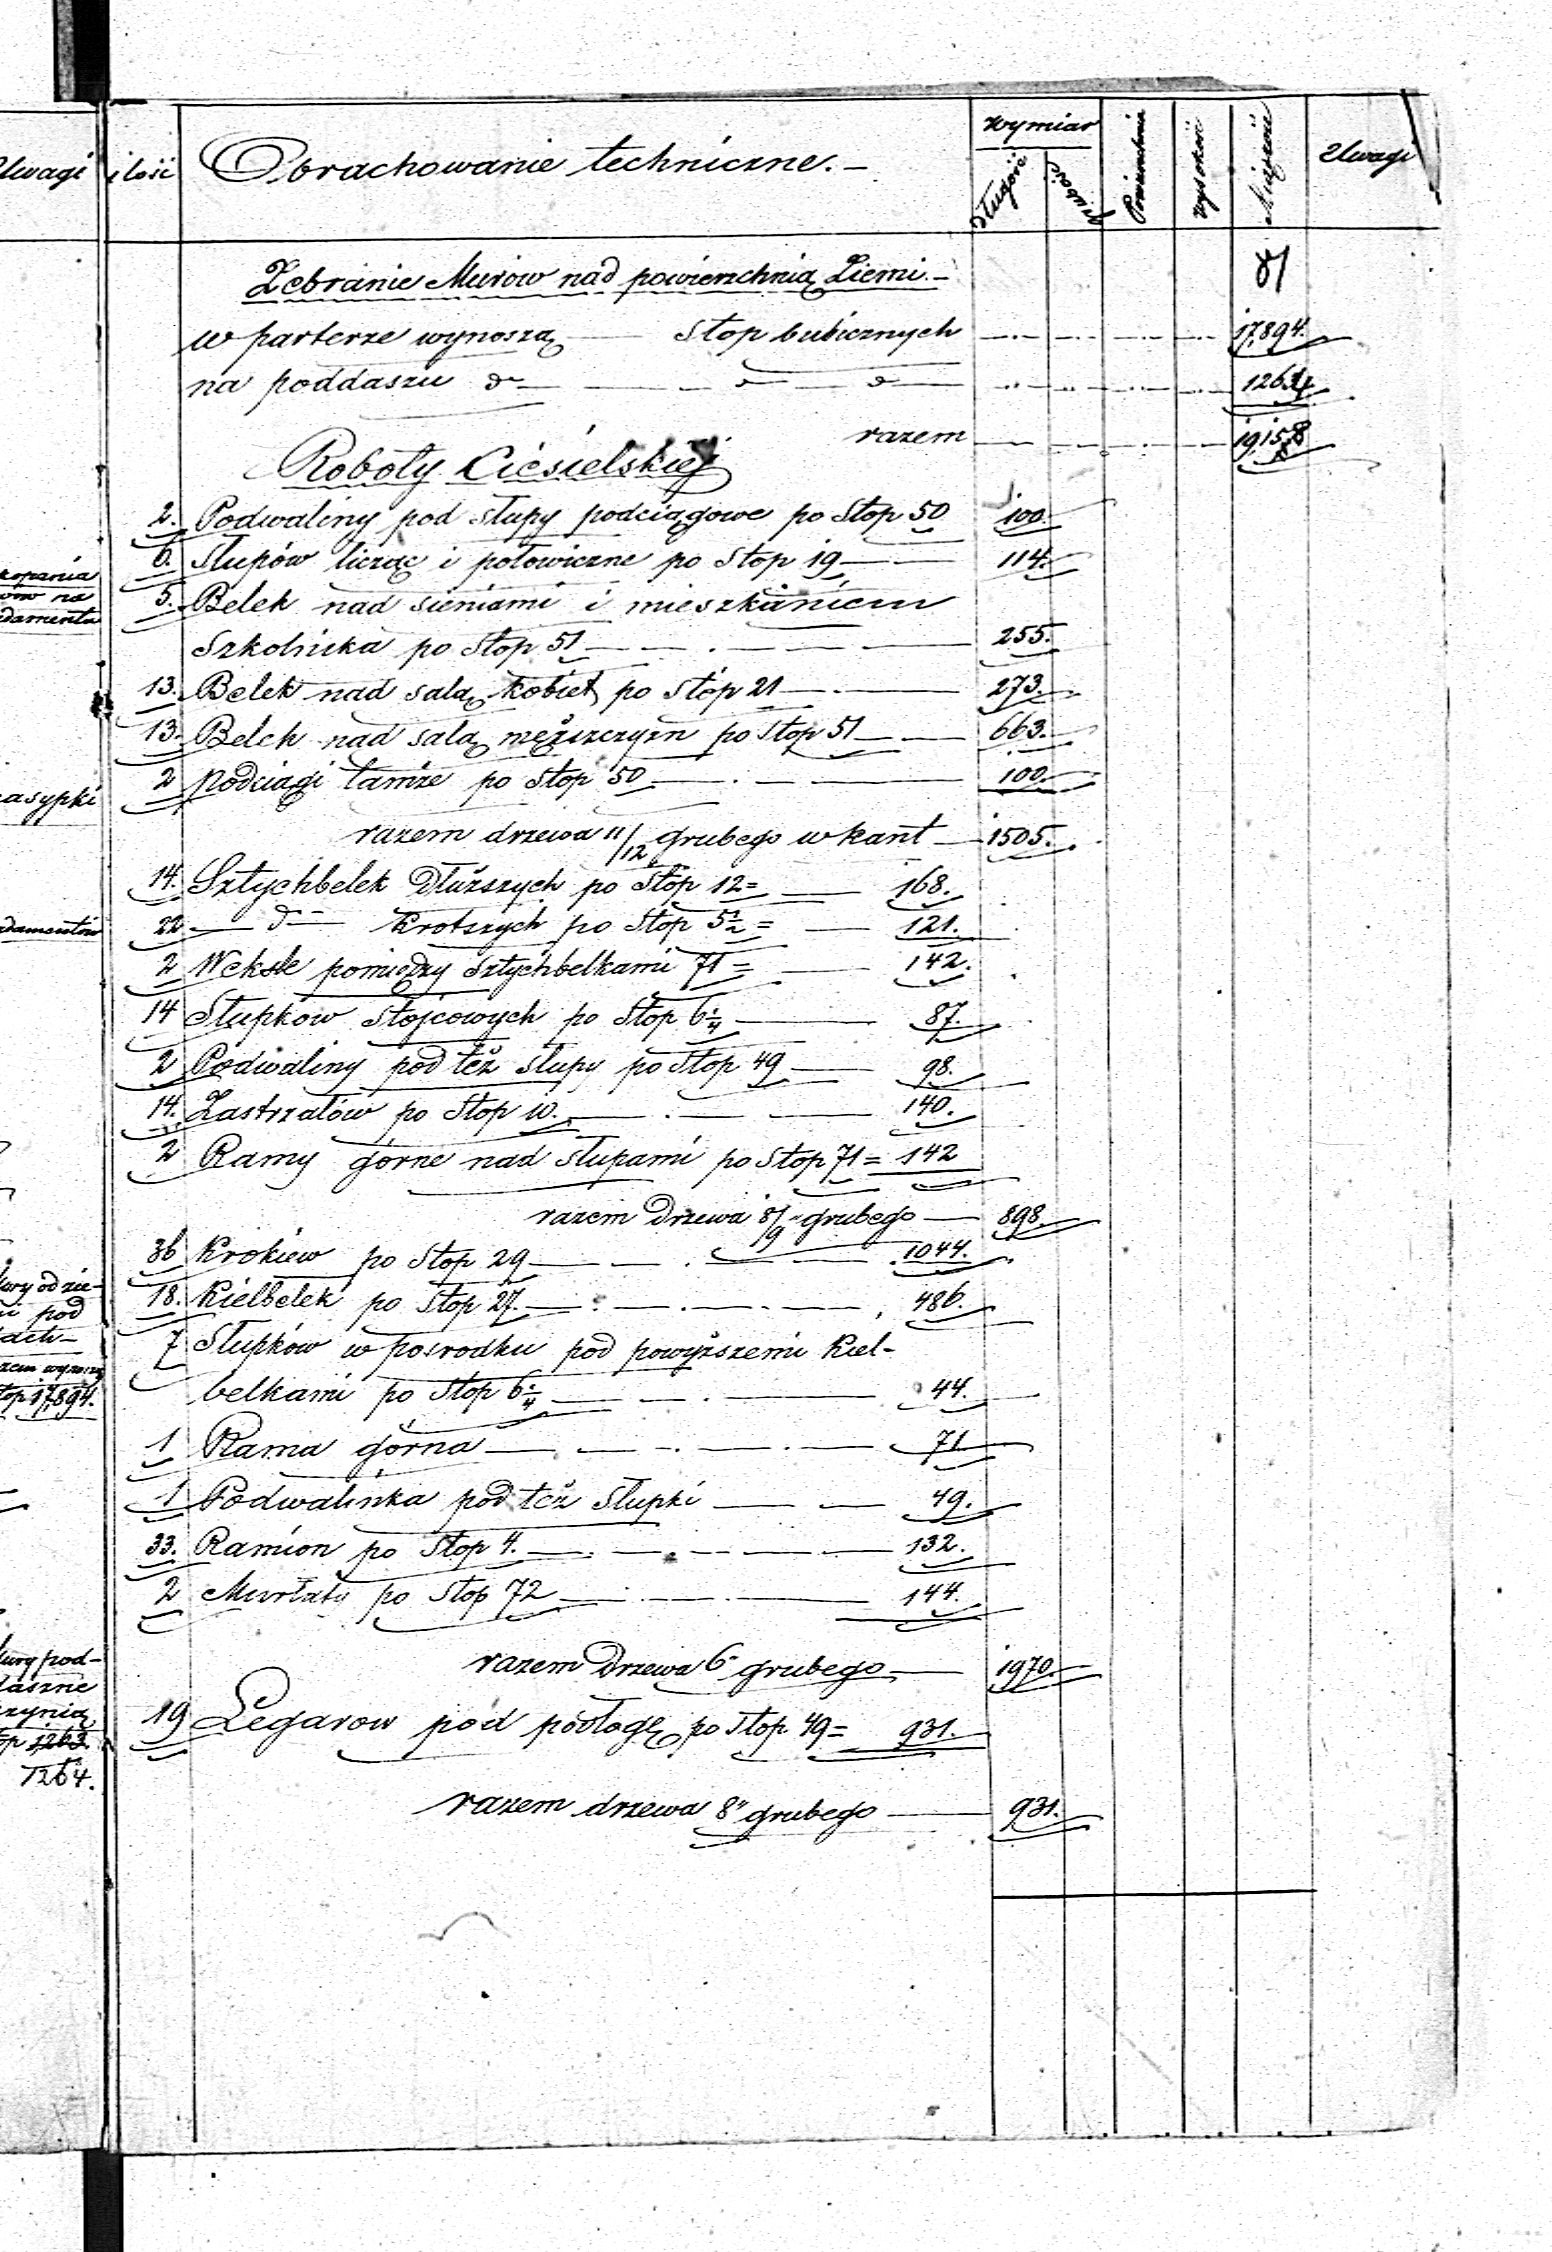 Uwagi ilość Obrachowanie techniczne.— wymiar długość grubość Powierzchnia wysokość Miąższość Uwagi
Zebranie Murów nad powierzchnią Ziemi.—
w parterze wynoszą — Stop kubicznych — 17,894.
na poddaszu dto — 1264
razem — 19,158
Roboty Ciesielskiej
2. Podwaliny pod słupy podciągowe po Stop 50 100.
6. Słupów licząc i połowiczne po Stop 19 — 114.
kopania
ów na
damenta
5. Belek nad sieniami i mieszkaniem
Szkolnika po Stop 51 — 255.
13. Belek nad salą kobiet po stóp 21 — 273.
13. Belek nad salą męzszczyzn po Stop 51 — 663.
2 podciągi tamże po Stop 50 — 100.
zasypki
razem drzewa 11/12 grubego w kant — 1505.
14. Sztychbelek Dłuższych po Stop 12 = — 168.
damentów
22 — dto — Krotszych po Stop 5½ = — 121.
2 Weksle pomiędzy Sztychbelkami 71 = — 142.
14 Słupków Stojcowych po Stop 6¼ — 87.
2 Podwaliny pod też słupy po Stop 49 — 98.
14. Zastrzałów po Stop 10. — 140.
2 Ramy górne nad słupami po Stop 71 = 142
razem Drzewa 8/9" grubego — 898.
36 Krokiew po Stop 29 — 1044.
18. Kielbelek po Stop 27. — 486.
7 Słupków w posrodku pod powyższemi Kiel-
belkami po Stop 6¼ — 44.
mury od zie-
pod
zem wynoszą
stop 17,894.
1 Rama górna — 71
1 Podwalinka pod też Słupki — 49.
33. Ramion po Stop 4. — 132.
2 Murłaty po Stop 72 — 144.
razem Drzewa 6" grubego — 1970.
mury pod-
daszne
czynią
stop 1263.
1264.
19 Legarow pod podłogę po Stop 49 = 931.
razem drzewa 8" grubego — 931.